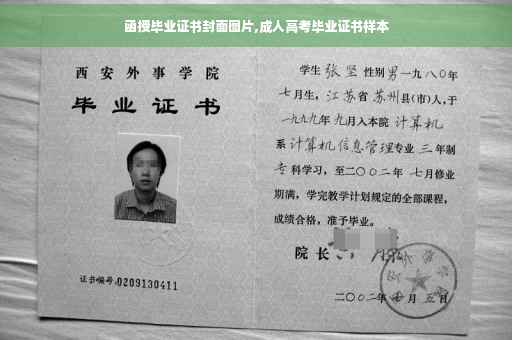 函授毕业证书封面图片,成人高考毕业证书样本
西安外事学院
毕业证书
证书编号:0209130411
学生 张坚 性别 男 一九八〇年
七月生, 江苏省 苏州县(市)人,于
一九九九年 九月入本院 计算机
系 计算机信息管理 专业 三 年制
专科学习,至二〇〇二年 七月修业
期满,学完教学计划规定的全部课程,
成绩合格,准予毕业。
院长
二〇〇二年 七月 五日